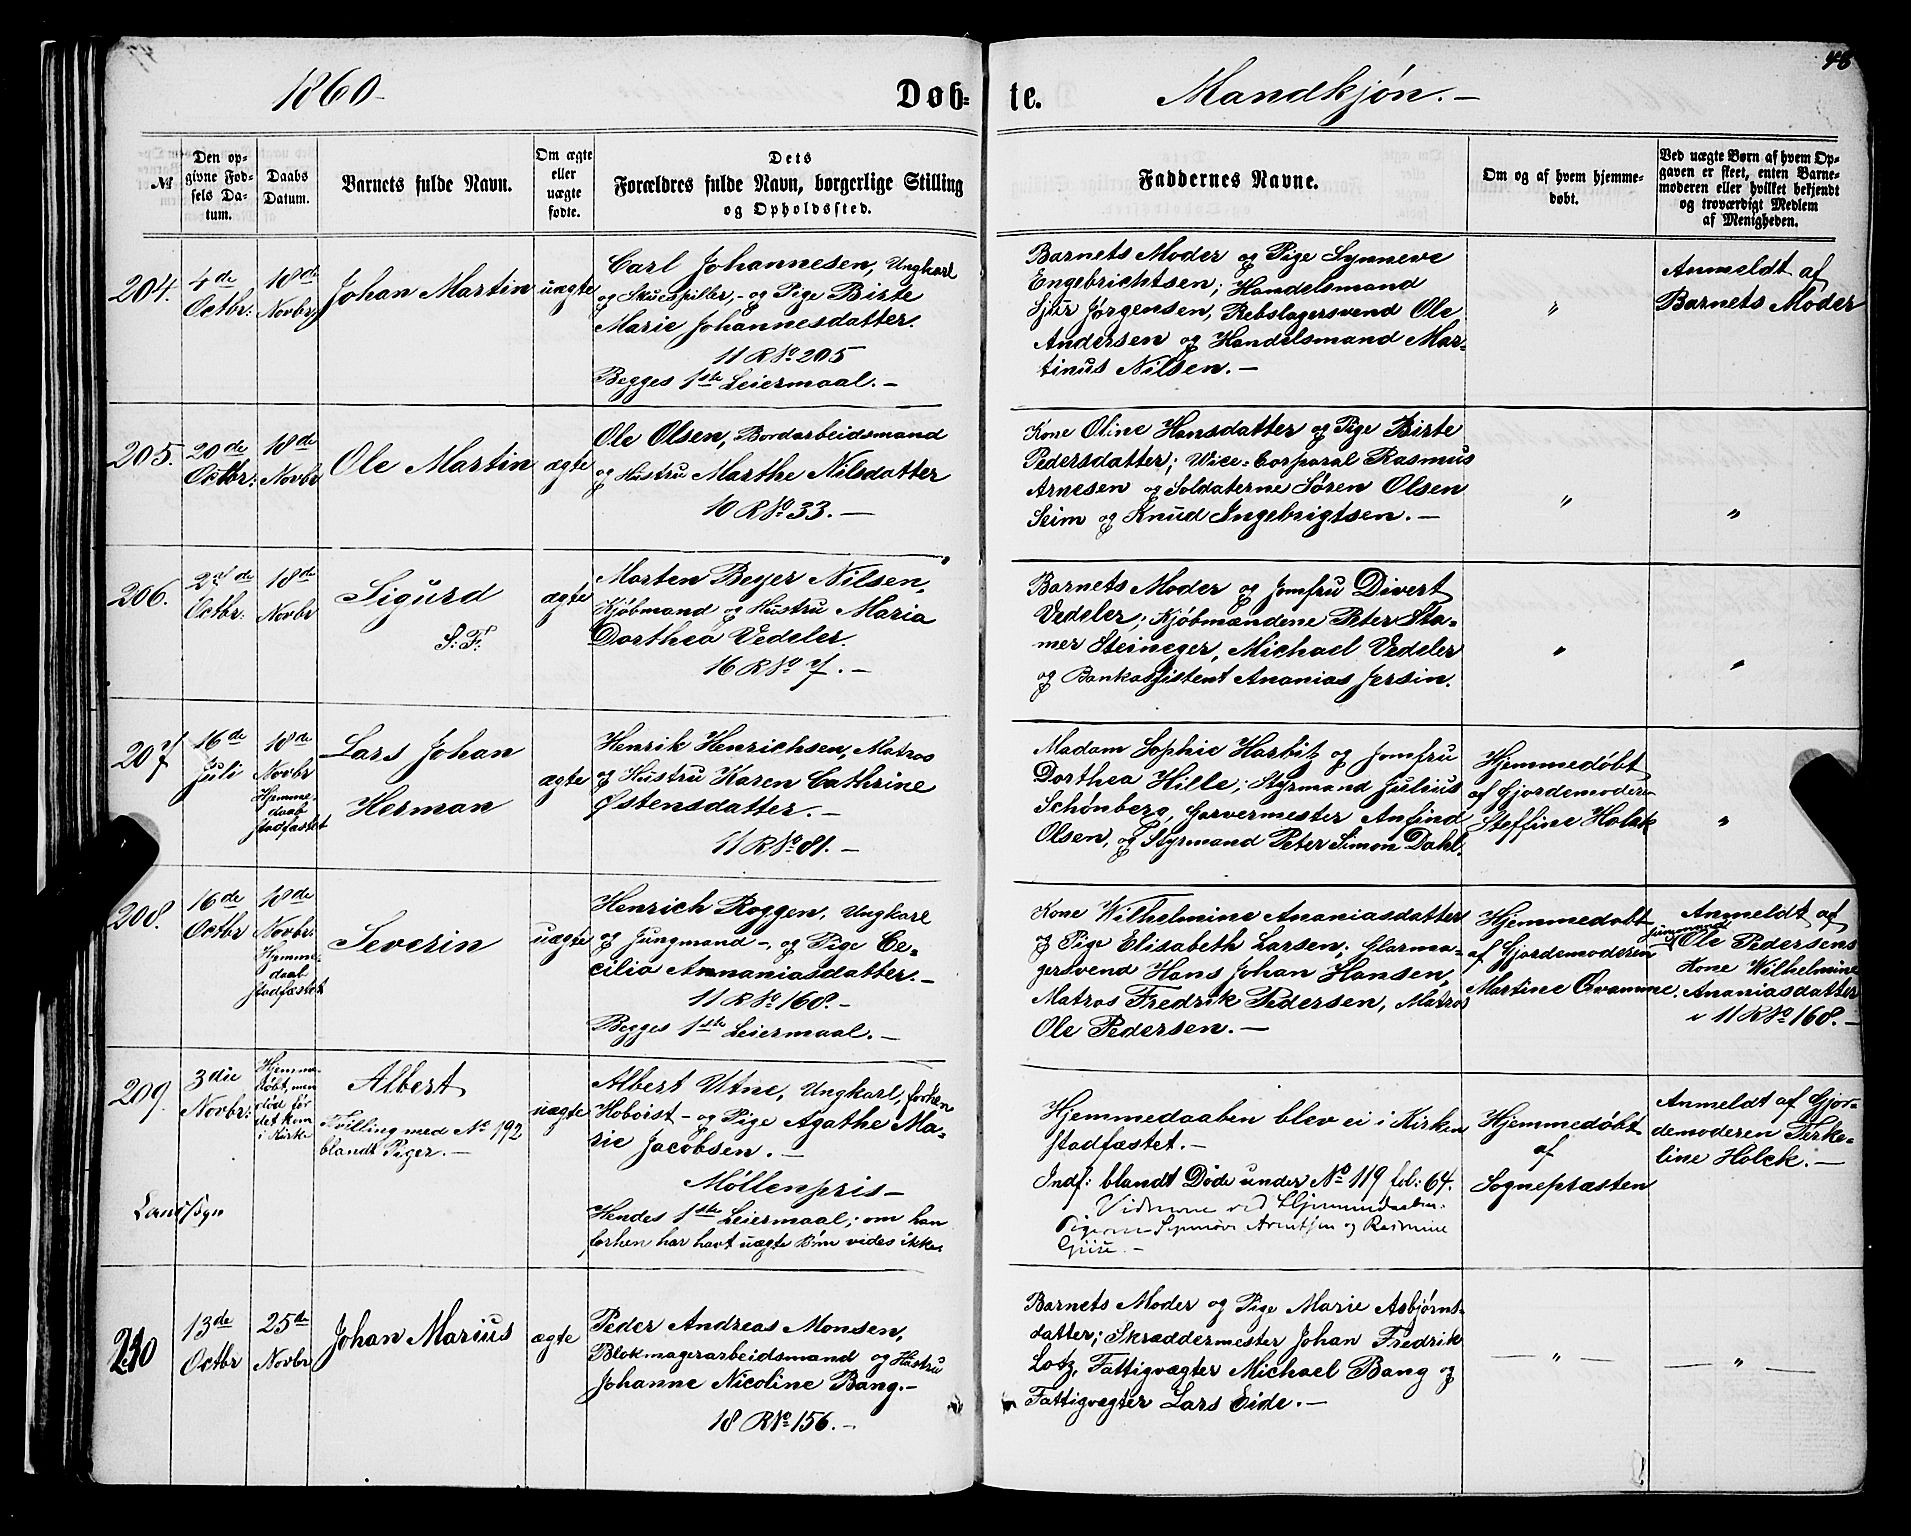 48
1860
Døbte.
Mandkjøn.
№
Den opgivne Fødsels Datum.
Daabs Datum.
Barnets fulde Navn.
Om ægte eller uægte fødte.
Dets
Forældres fulde Navn, borgerlige Stilling
og Opholdssted.
Faddernes Navne.
Om og af hvem hjemmedøbt.
Ved uægte Børn af hvem Opgaven er skeet, enten Barnemoderen eller hvilket bekjendt og troværdigt Medlem af Menigheden.
204.
4de
Octbr:
18de
Novbr:
Johan Martin
uægte
Carl Johannesen, Ungkarl
og Skuespiller, - og Pige Birte
Marie Johannesdatter.
11 R No 205
Begges 1ste Leiermaal. -
Barnets Moder og Pige Synneve
Engebrichtsen; Handelsmand
Sjur Jørgensen, Rebslagersvend Ole
Andersen og Handelsmand Mar-
tinus Nilsen. -
"
Anmeldt af
Barnets Moder
205.
20de
Octbr:
18de
Novbr
Ole Martin
ægte
Ole Olsen, Bordarbeidsmand
og Hustru Marthe Nilsdatter
10 R No 33. -
Kone Oline Hansdatter og Pige Birte
Pedersdatter; Wice-Corporal Rasmus
Arnesen og Soldaterne Søren Olsen
Seim og Knud Ingebrigtsen. -
"
"
206.
27de
Octbr:
18de
Novbr
Sigurd
S: F:
ægte
Morten Beyer Nilsen,
Kjøbmand og Hustru Maria
Dorthea Vedeler.
16 R No 7. -
Barnets Moder og Jomfru Divert
Vedeler; Kjøbmændene Peter Sta-
mer Steineger, Michael Vedeler
og Bankassistent Ananias Jersin.
"
"
207
16de
Juli
18de
Novbr
Hjemme-
daab
stadfæstet
Lars Johan
Herman
ægte
Henrik Henrichsen, Matros
og Hustru Karen Cathrine
Østensdatter. -
11 R No 81. -
Madam Sophie Harbitz og Jomfru
Dorthea Hille; Styrmand Julius
Schønberg, Garvermester Anfind
Olsen, og Styrmand Peter Simon Dahl.
Hjemmedøbt
af Gjordemoderen
Steffine Holck
"
208.
16de
Octbr
18de
Novbr:
Hjemme-
daab
stadfæstet
Severin
uægte
Henrich Roggen, Ungkarl
og Jungmand -, og Pige Ce-
cilia Annaniasdatter. -
11 R No 168. -
Begges 1ste Leiermaal. -
Kone Wilhelmine Ananiasdatter
og Pige Elisabeth Larsen; Glarma-
gersvend Hans Johan Hansen,
Matros Fredrik Pedersen, Matros
Ole Pedersen. -
Hjemmedøbt
af Gjordemoderen
Martine Qvamme.
Anmeldt af
Ole Pedersens
Kone Wilhelmine
Ananiasdatter
i 11 R No 168. -
209.
3die
Novbr:
Hjemme-
døbt, men
død før
det kom
i Kirke
Albert
Tvilling med No 192
blandt Piger. -
uægte
Albert Utne, Ungkarl, forhen
Hoboist - og Pige Agathe Ma-
rie Jacobsen. -
Møllenpris -
Hendes 1ste Leiermaal; om han
forhen har havt uægte Børn vides ikke.
Landsogn
Hjemmedaaben blev ei i Kirken
stadfæstet. -
Indf: blandt Døde under No 119 fol: 64.
Vidnerne ved Hjemmedaaben:
Pigerne Synnøve Arentsen og Rasmine
Hjemmedøbt
af
Sognepræsten
Anmeldt af Gjor-
demoderen Terke-
line Holck. -
210
13de
Octbr
25de
Novbr
Johan Marius
ægte
Peder Andreas Monsen,
Blokmagerarbeidsmand og Hustru
Johanne Nicoline Bang. -
18 R No 156. -
Barnets Moder og Pige Marie Asbjørns-
datter; Skræddermester Johan Fredrik
Lotz, Fattigvægter Michael Bang og
Fattigvægter Lars Eide. -
- " -
- " -